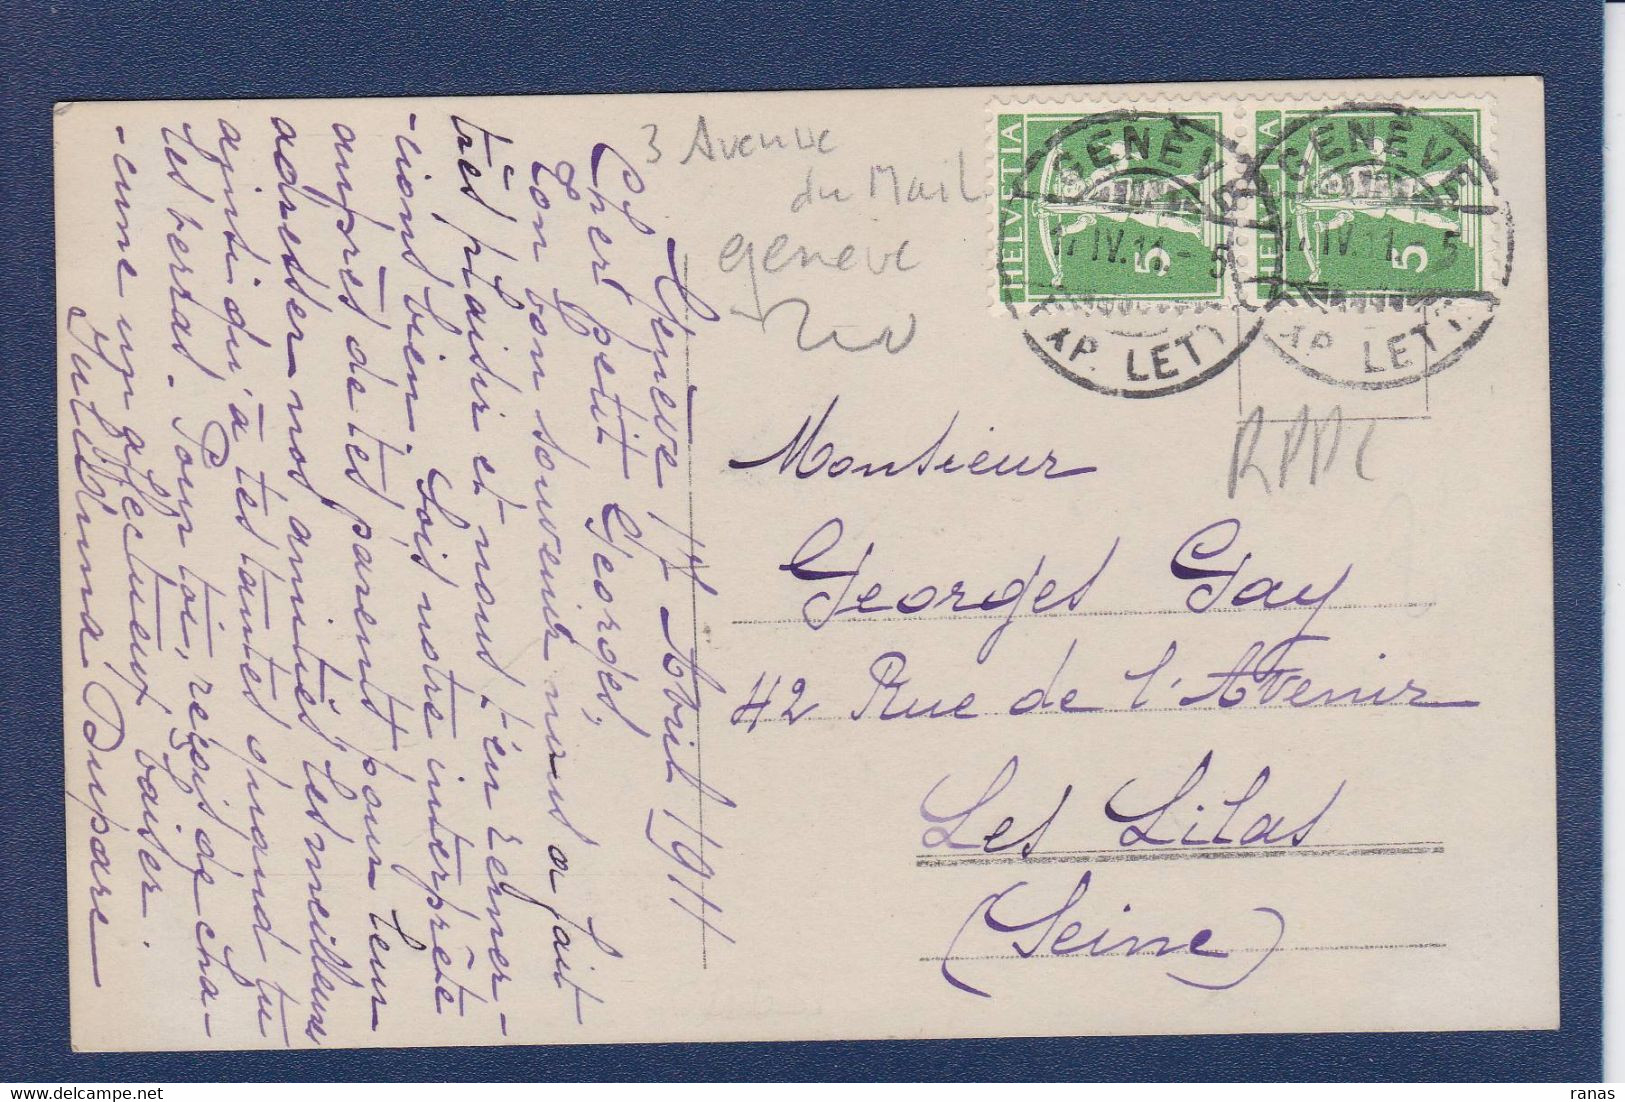 Genève 17 Avril 1911
Cher petit Georges,
Ton bon souvenir nous a fait
très plaisir et nous t'en remer-
-cions bien. Sois notre interprète
auprès de tes parents pour leur
adresser nos amitiés les meilleures
ainsi qu'à tes tantes quand tu
les verras. Pour toi, reçois de cha-
-cune un affectueux baiser.
Dupare
3 Avenue
du Mail
geneve
HELVETIA 5
HELVETIA 5
GENÈVE
17.IV.11.-5
EXP. LETT.
GENÈVE
17.IV.11.-5
EXP. LETT.
Monsieur
Georges Gay
42 Rue de l'Avenir
Les Lilas
(Seine)
ranas